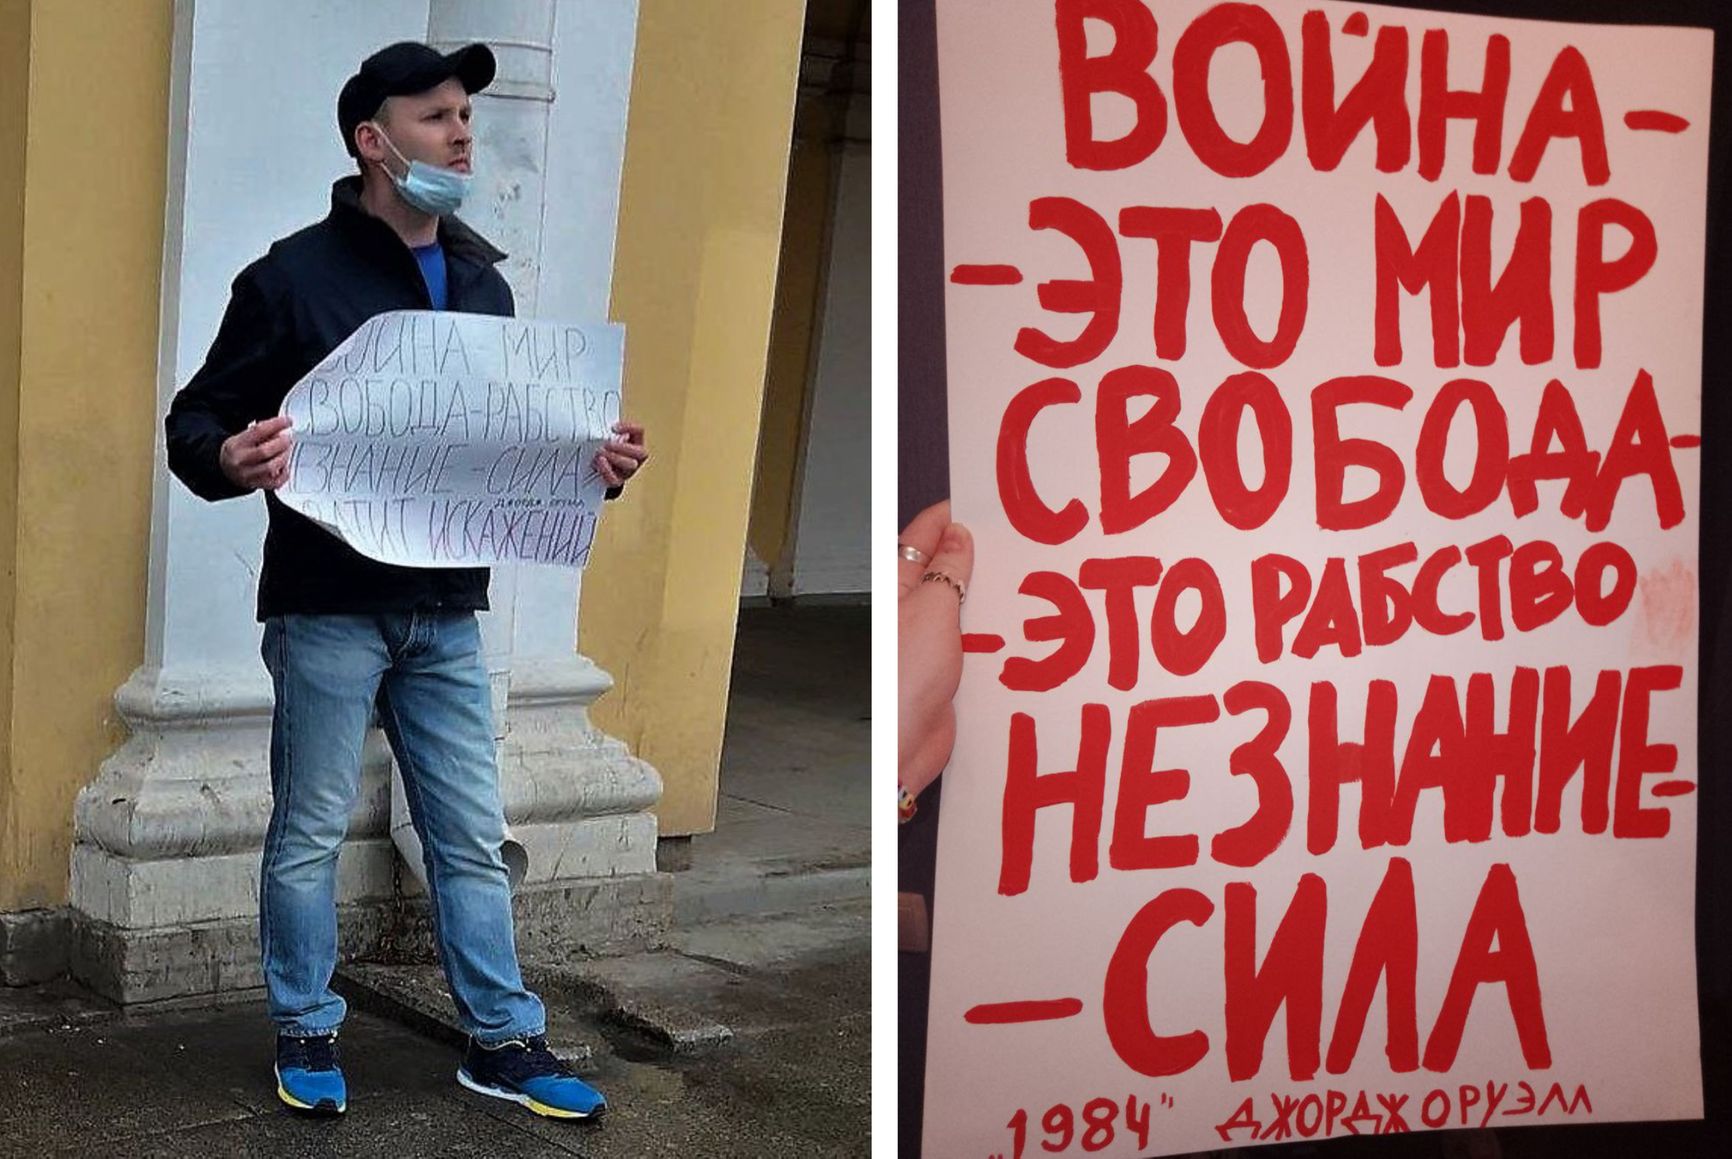 ВОЙНА МИР
СВОБОДА-РАБСТВО
НЕЗНАНИЕ-СИЛА
ДЖОРДЖ ОРУЭЛЛ
ХВАТИТ ИСКАЖЕНИЙ
ВОЙНА-
-ЭТО МИР
СВОБОДА-
-ЭТО РАБСТВО
НЕЗНАНИЕ-
-СИЛА
„1984" ДЖОРДЖ ОРУЭЛЛ